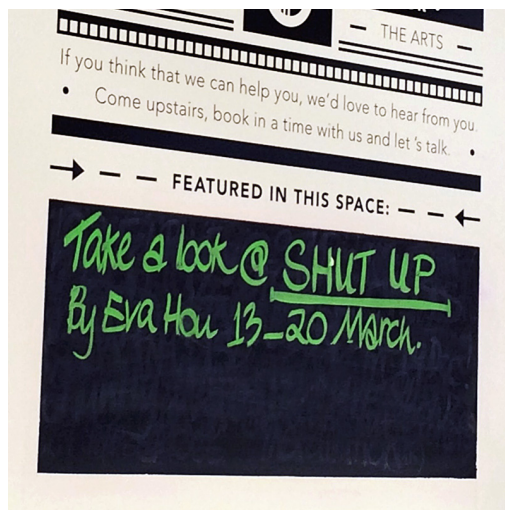 THE ARTS
If you think that we can help you, we'd love to hear from you.
• Come upstairs, book in a time with us and let 's talk. •
FEATURED IN THIS SPACE:
Take a look @ SHUT UP
By Eva Hou 13-20 March.